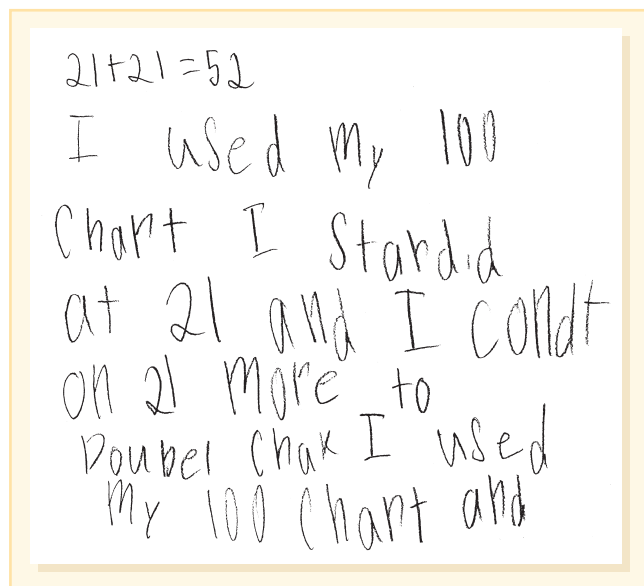 21+21=52
I used my 100
Chart I Stardid
at 21 and I condt
on 21 more to
Doubel Chak I used
My 100 Chart and